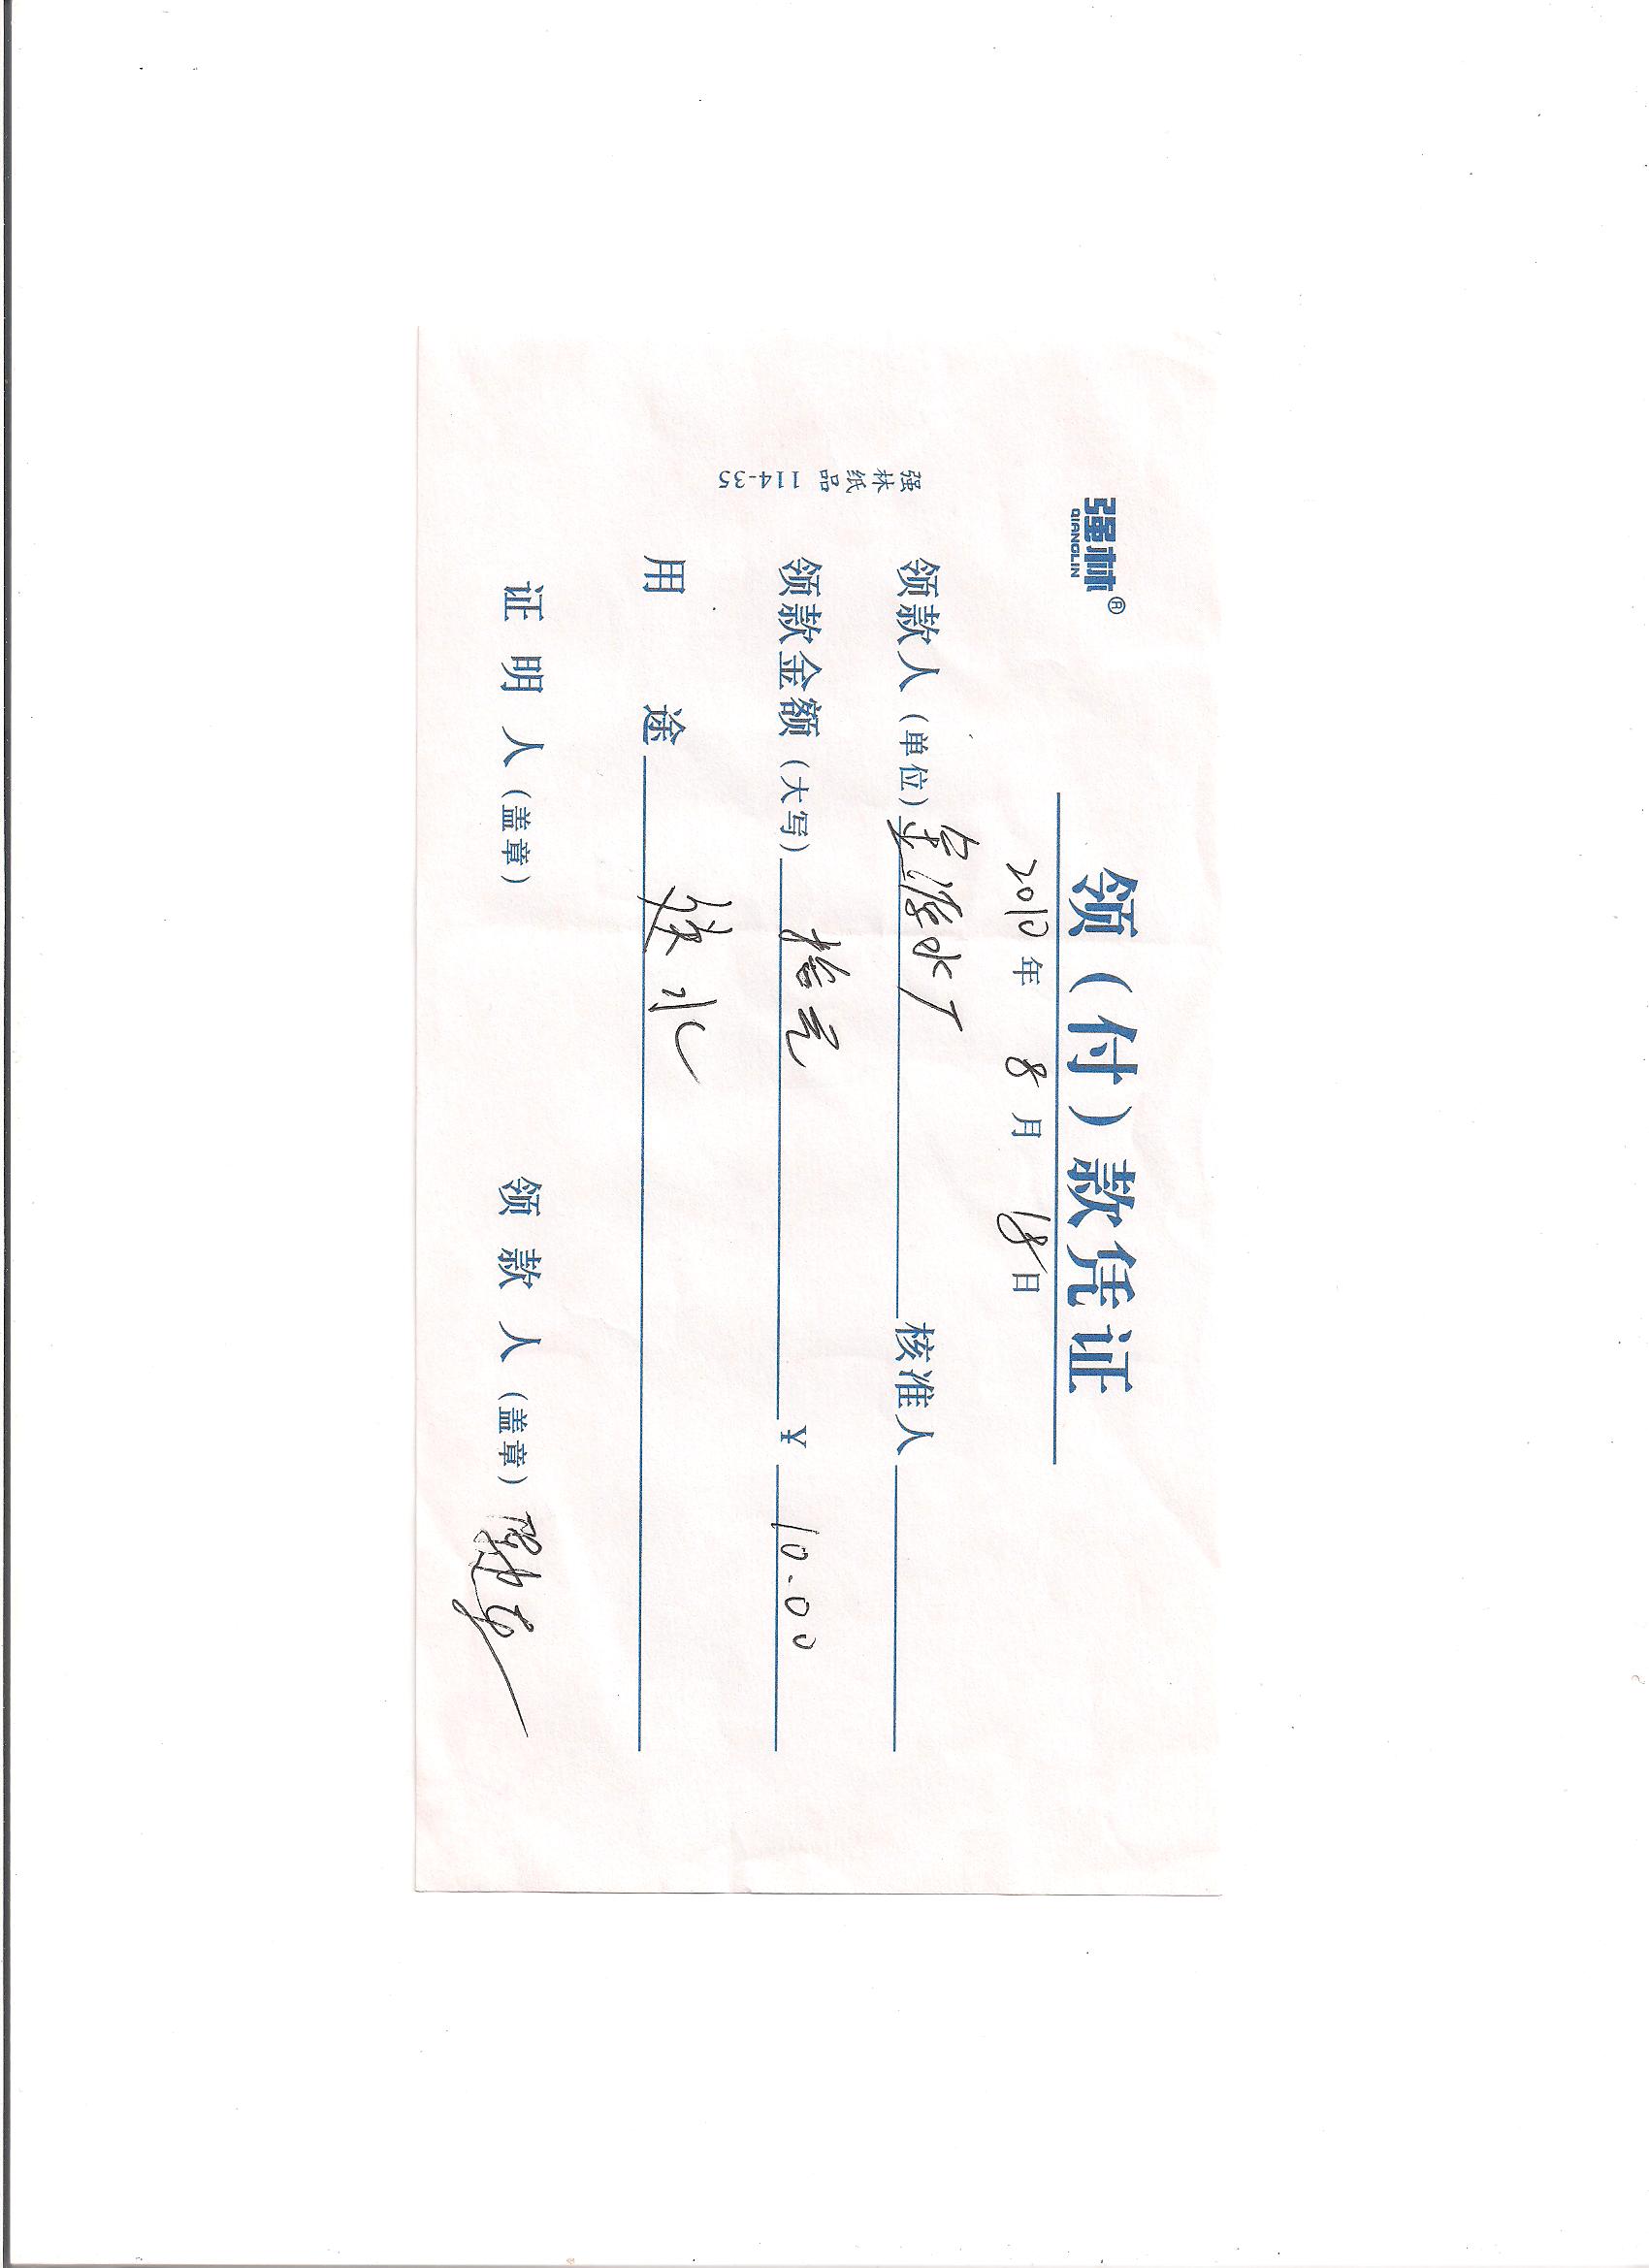 强林®
QIANGLIN
领（付）款凭证
2010年 8月 18日
领款人（单位） 水厂 核准人
领款金额（大写） 拾元 ¥ 10.00
用 途 水
证 明 人（盖章） 领 款 人（盖章）
强林纸品 114-35